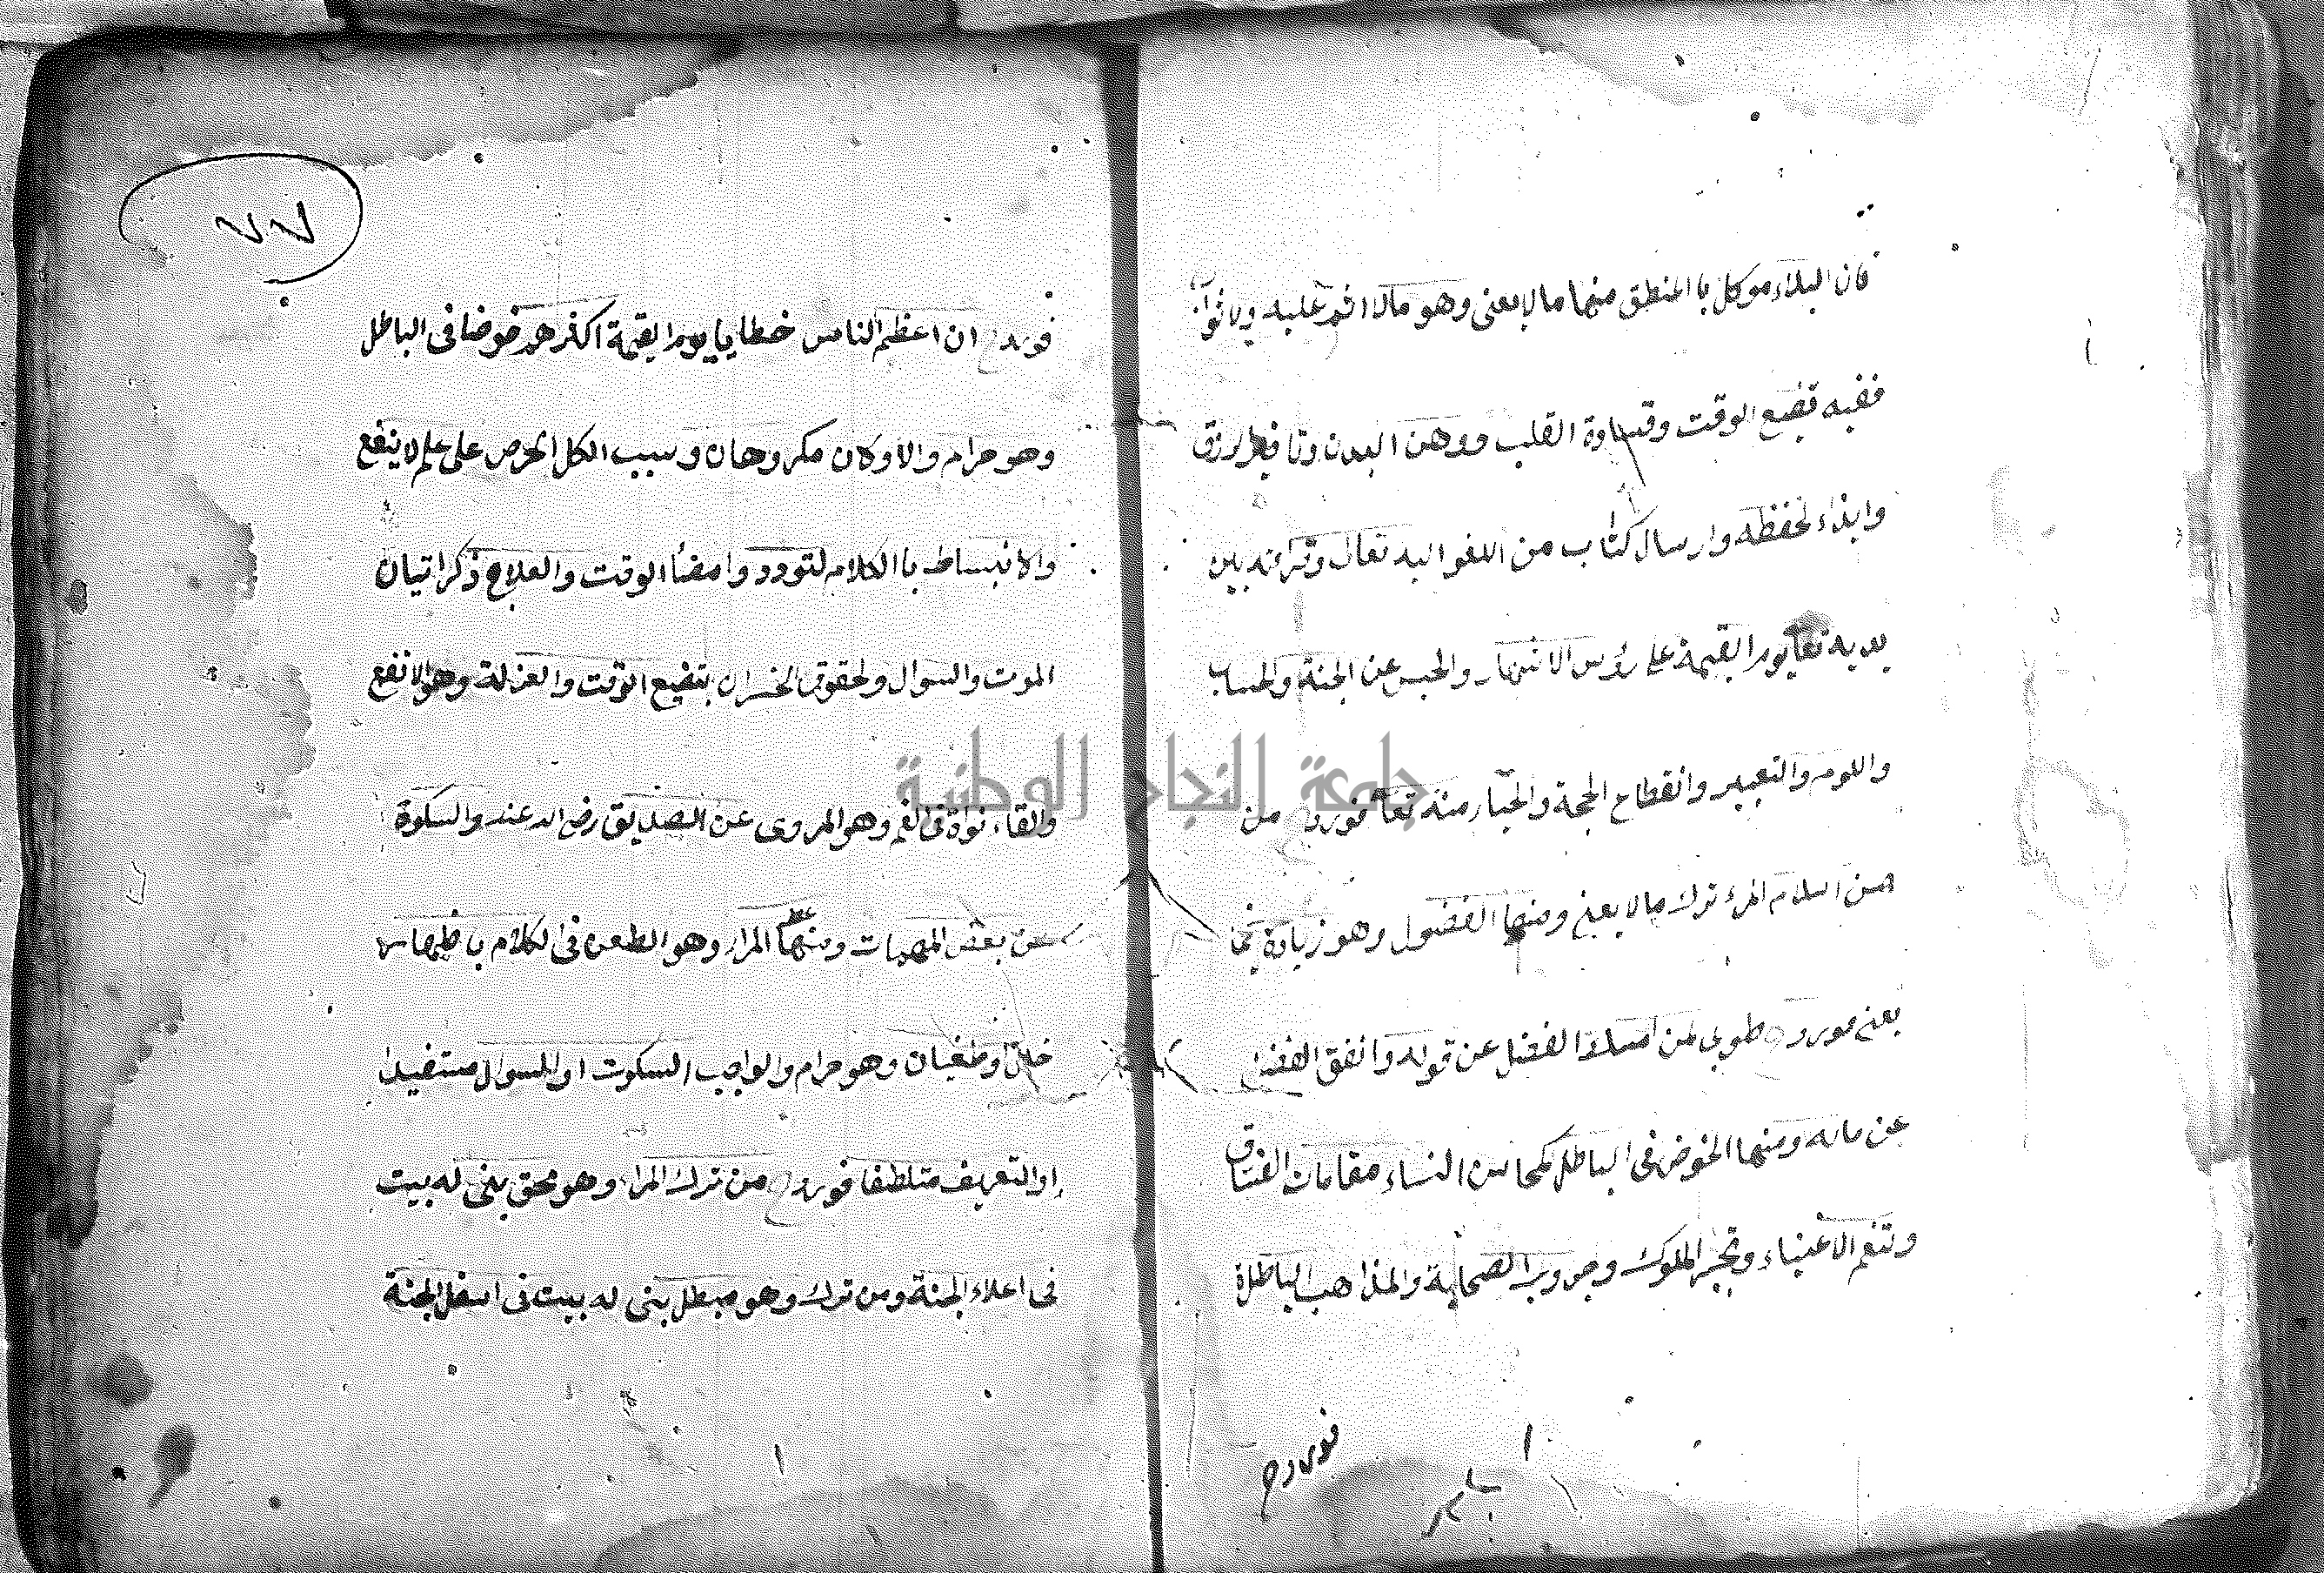 فان البلاء موكل با المنطق منها ما لا يعنى وهو مالا اثم عليه ولا ثواب
ففيه تضيع الوقت وقساوة القلب ووهن البدن وتا الرزق
وايذاء لحفظه وارسال كتاب من اللغو اليه تعالى وقرائته بين
يديه تعا يوم القيمة على رؤس الاشهار والحبس عن الجنة والحساب
واللوم والتعيير وانقطاع الحجة والحياء منه تعا فورد من
حسن اسلام المرء ترك ما لا يعنى ومنها الفضول وهو زيادة فيما
يعنى فورد طوبى لمن امسك الفضل عن قوله وانفق الفضل
عن ماله ومنها الخوض فى الباطل كمحاسن النساء مقامات الفساق
وتنعم الاغنياء وتجبر الملوك وحروب الصحابة والمذاهب الباطلة
فورد
٧٧
فورد ان اعظم الناس خطايا يوم القيمة اكثرهم خوضا فى الباطل
وهو حرام والاوكان مكروهان وسبب الكل الحرص على علم لا ينفع
والانبساط با الكلام لتودد وامضاء الوقت والعلاج ذكر اتيان
الموت والسوال ولحقوق الخسران بتضيع الوقت والعزلة وهو الانفع
والقاء نواة فى الفم وهو المروى عن الصديق رضى الله عنه والسكوة
عن بعض المهمات ومنها المراء وهو الطعن فى الكلام باظهار
خلل او طغيان وهو حرام والواجب السكوت او السوال مستفيدا
او التعريف متلطفا فورد من ترك المراء وهو محق بنى له بيت
فى اعلاء الجنة ومن ترك وهو مبطل بنى له بيت فى اسفل الجنة
جامعة النجاح الوطنية